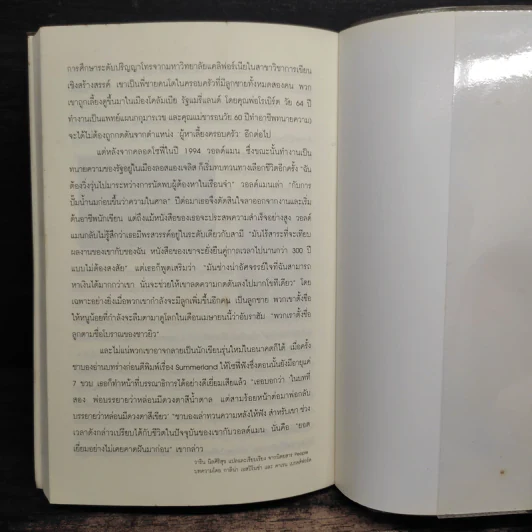 การศึกษาระดับปริญญาโทจากมหาวิทยาลัยแคลิฟอร์เนียในสาขาวิชาการเขียน
เชิงสร้างสรรค์ เขาเป็นพี่ชายคนโตในครอบครัวที่มีลูกชายทั้งหมดสองคน พวก
เขาถูกเลี้ยงดูขึ้นมาในเมืองโคลัมเบีย รัฐแมรี่แลนด์ โดยคุณพ่อโรเบิร์ต วัย 64 ปี
ทำงานเป็นแพทย์แผนกกุมารเวช และคุณแม่ชารอนวัย 60 ปีทำอาชีพทนายความ
จะได้ไม่ต้องถูกกดดันจากตำแหน่ง ผู้หาเลี้ยงครอบครัว อีกต่อไป
แต่หลังจากคลอดโซฟีในปี 1994 วอลด์แมน ซึ่งขณะนั้นทำงานเป็น
ทนายความของรัฐอยู่ในเมืองลอสแองเจลิส ก็เริ่มทบทวนทางเลือกชีวิตอีกครั้ง "ฉัน
ต้องวิ่งวุ่นไปมาระหว่างการนัดพบผู้ต้องหาในเรือนจำ" วอลด์แมนเล่า "กับการ
ปั๊มน้ำนมก่อนขึ้นว่าความในศาล" ปีต่อมาเธอจึงตัดสินใจลาออกจากงานและเริ่ม
ต้นอาชีพนักเขียน แต่ถึงแม้หนังสือของเธอจะประสพความสำเร็จอย่างสูง วอลด์
แมนกลับไม่รู้สึกว่าเธอมีพรสวรรค์อยู่ในระดับเดียวกับสามี "มันไร้สาระที่จะเทียบ
ผลงานของเขากับของฉัน หนังสือของเขาจะยั่งยืนคู่กาลเวลาไปนานกว่า 300 ปี
แบบไม่ต้องสงสัย" แต่เธอก็พูดเสริมว่า "มันช่างน่าอัศจรรย์ใจที่ฉันสามารถ
หาเงินได้มากกว่าเขา นั่นจะช่วยให้เขาลดความกดดันลงไปมากโขทีเดียว" โดย
เฉพาะอย่างยิ่งเมื่อพวกเขากำลังจะมีลูกเพิ่มขึ้นอีกคน เป็นลูกชาย พวกเขาตั้งชื่อ
ให้หนูน้อยที่กำลังจะลืมตามาดูโลกในเดือนเมษายนนี้ว่าอับราฮัม "พวกเราตั้งชื่อ
ลูกตามชื่อโบราณของชาวยิว"
และไม่แน่พวกเขาอาจกลายเป็นนักเขียนรุ่นใหม่ในอนาคตก็ได้ เมื่อครั้ง
ชาบองอ่านบทร่างก่อนตีพิมพ์เรื่อง Summerland ให้โซฟีฟังซึ่งตอนนั้นยังมีอายุแค่
7 ขวบ เธอก็ทำหน้าที่บรรณาธิการได้อย่างดีเยี่ยมเสียแล้ว "เธอบอกว่า 'ในบทที่
สอง พ่อบรรยายว่าหล่อนมีดวงตาสีน้ำตาล แต่สามร้อยหน้าต่อมาพ่อกลับ
บรรยายว่าหล่อนมีดวงตาสีเขียว'" ชาบองเล่าทวนความหลังให้ฟัง สำหรับเขา ช่วง
เวลาดังกล่าวเปรียบได้กับชีวิตในปัจจุบันของเขากับวอลด์แมน นั่นคือ "ยอด
เยี่ยมอย่างไม่เคยคาดฝันมาก่อน" เขากล่าว